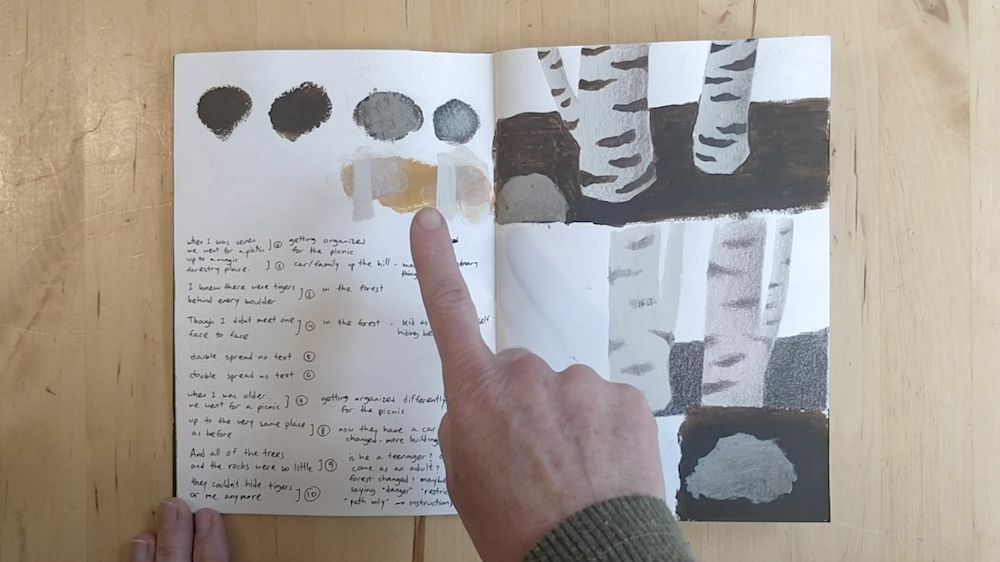 when I was seven
we went for a picnic
up to a magic
forestry place.
] ② getting organized
for the picnic
] ③ car/family up the hill -
I knew there were tigers
behind every boulder
] ③ in the forest
Though I didnt meet one
face to face
] ④ in the forest - kid as
hiding
double spread no text ⑤
double spread no text ⑥
when I was older
we went for a picnic
] getting organized differently
for the picnic
up to the very same place
as before
] ⑧ now they have a car
changed - more building
And all of the trees
and the rocks were so little
] ⑨ is he a teenager?
come as an adult?
forest changed? maybe
they couldnt hide tigers
or me anymore
] ⑩ saying "danger"
"path only" → instruction